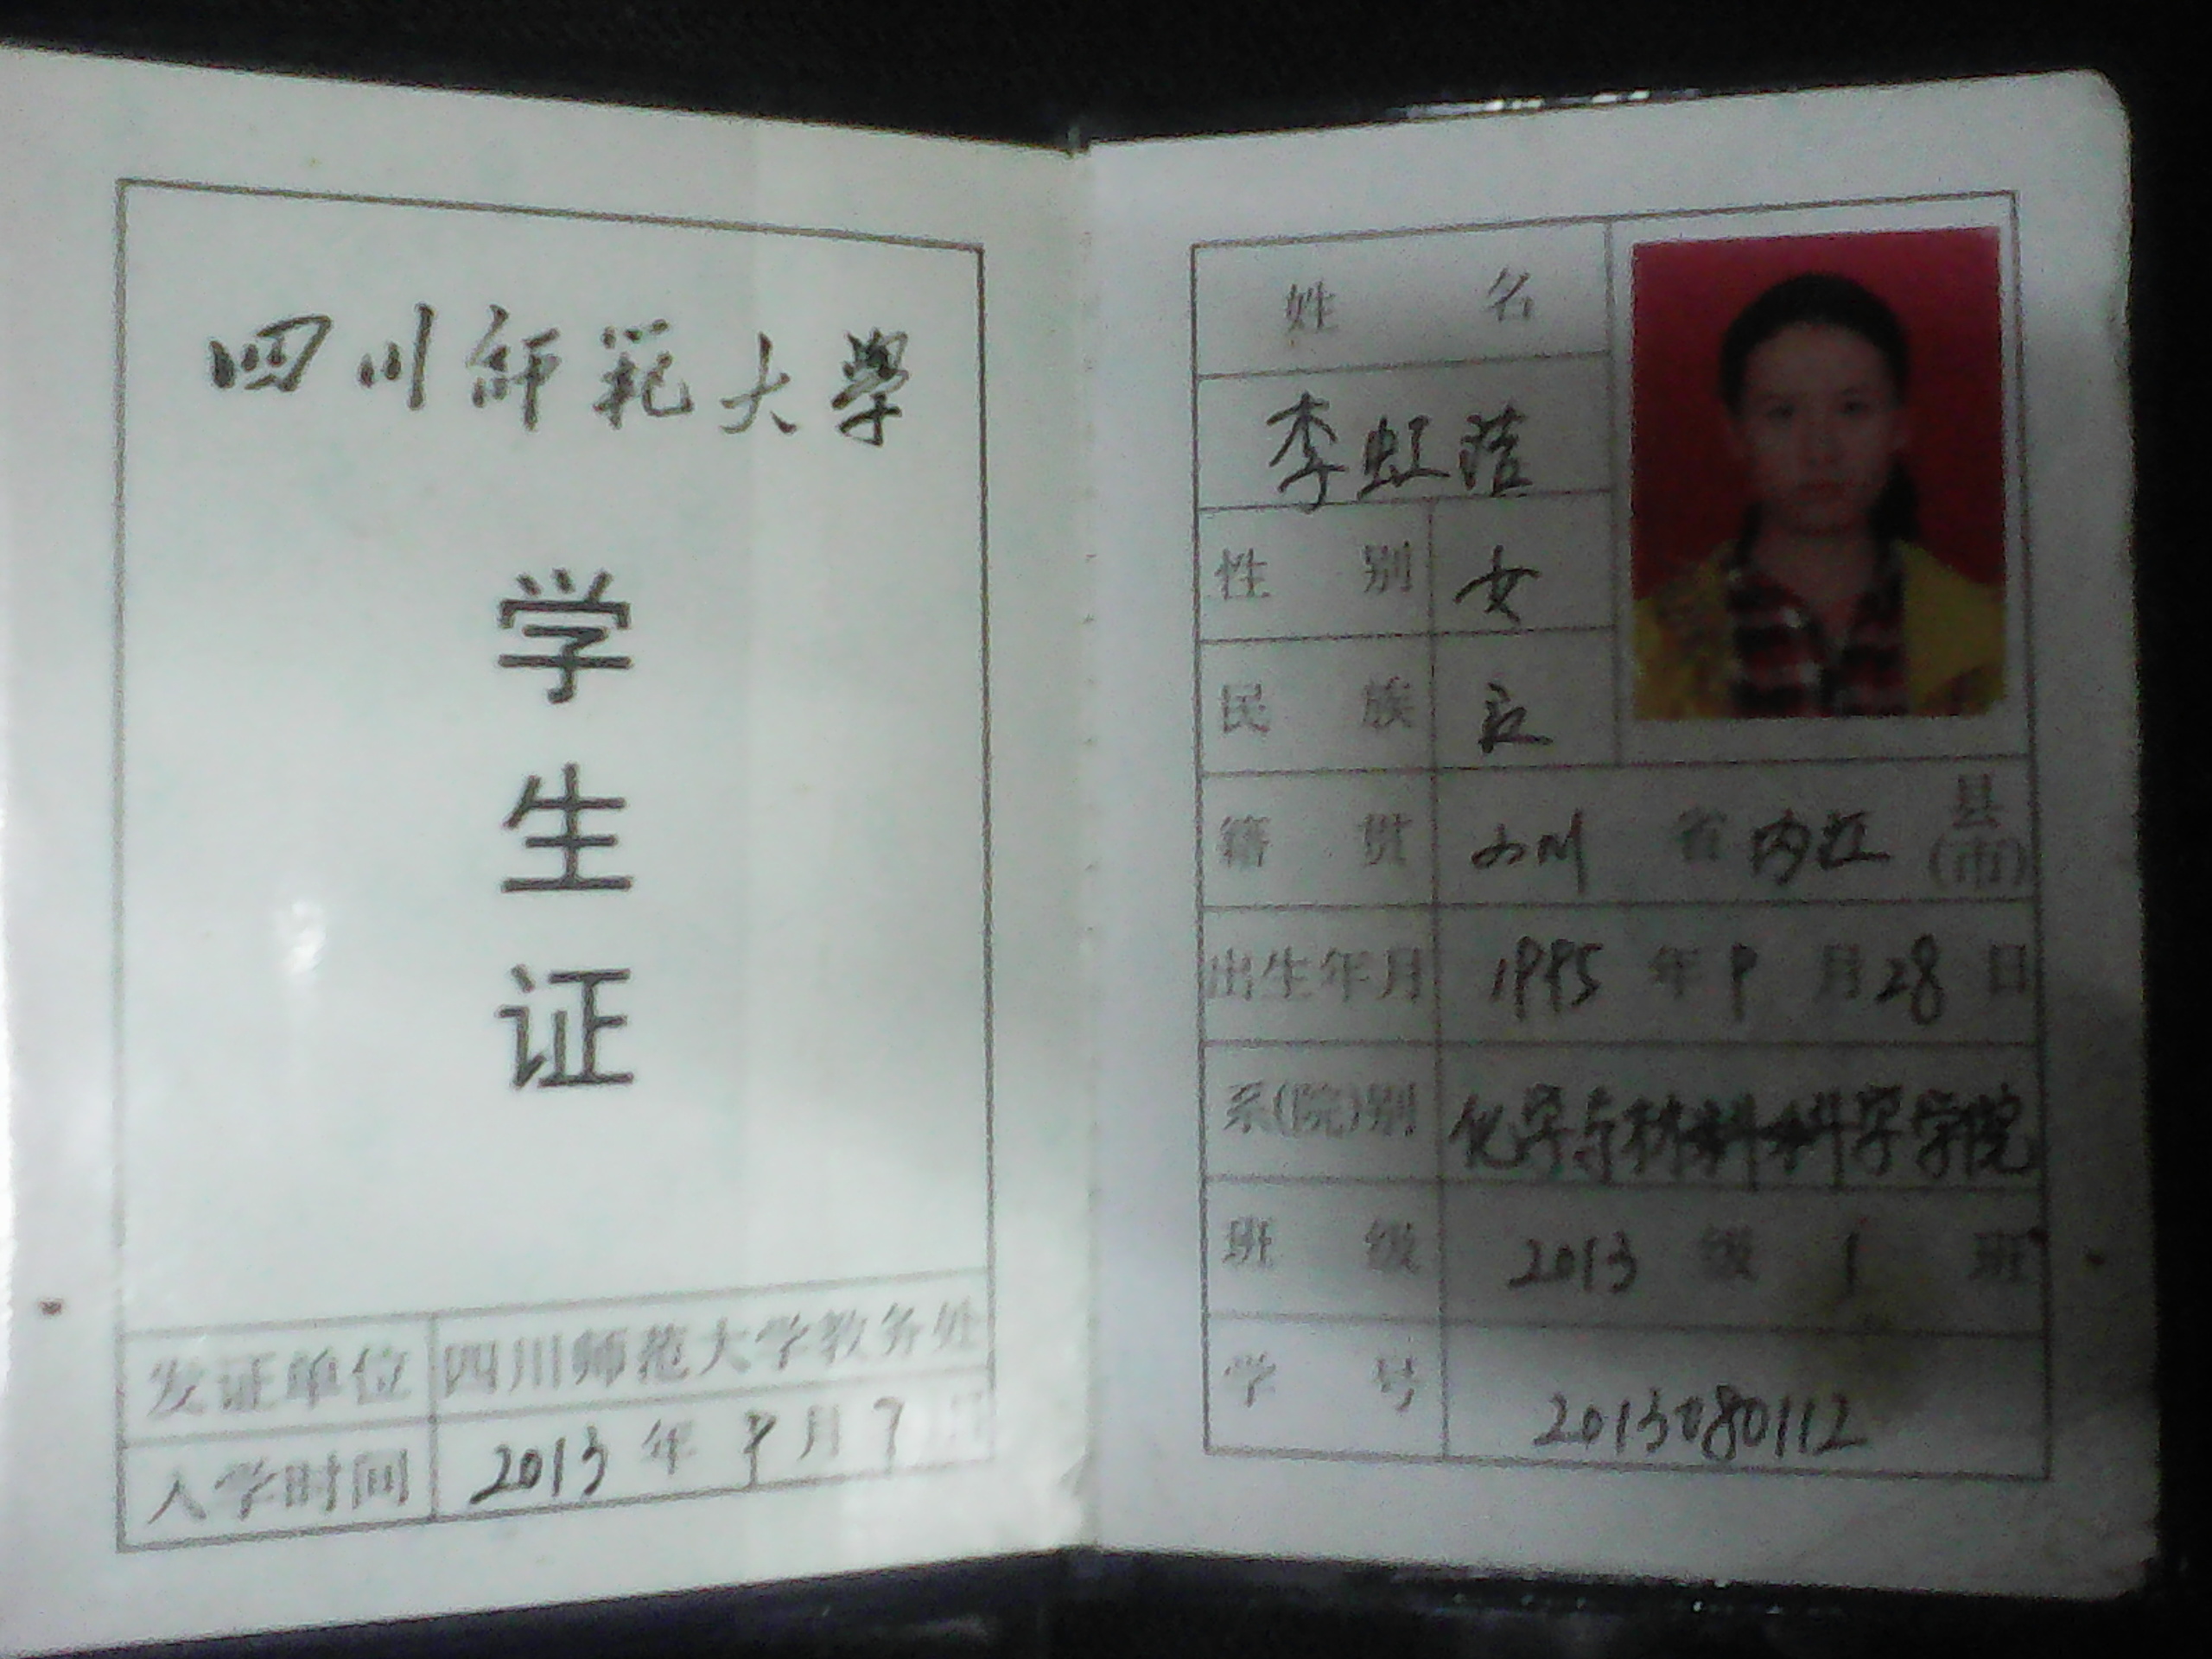 四川师范大學
学
生
证
发证单位 四川师范大学教务处
入学时间 2013 年 9 月 7 日
姓 名
李虹洁
性 别 女
民 族 汉
籍 贯 四川 省 内江 县(市)
出生年月 1995 年 9 月 28 日
系(院)别 化学与材料科学学院
班 级 2013 级 1 班
学 号 2013080112